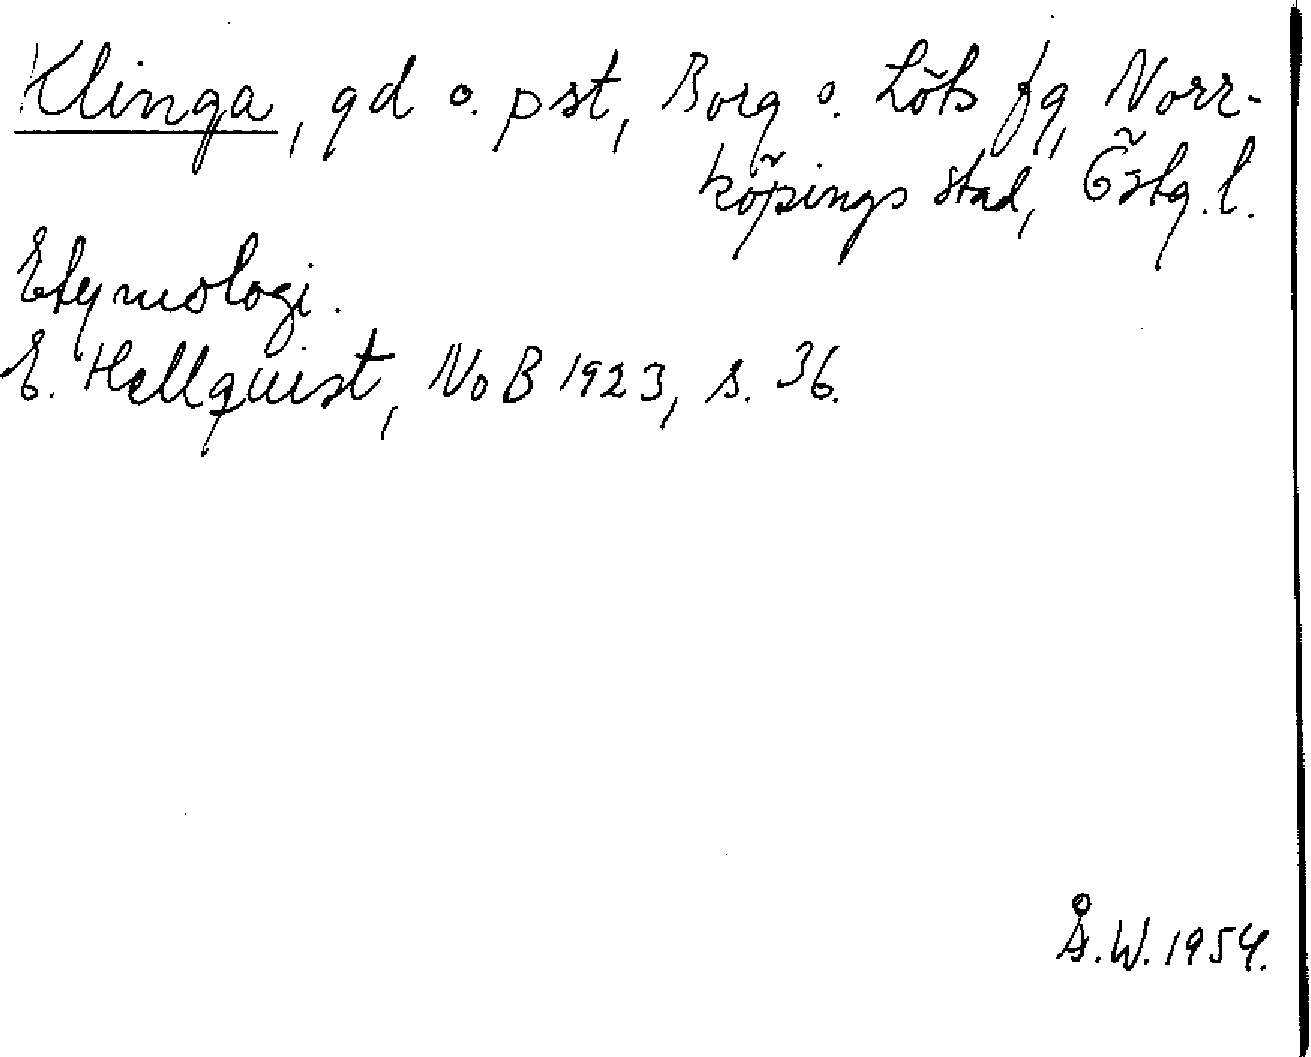 Klinga, gd o. pst, Borg o. Löts fg, Norr-
köpings stad, Östg. l.
Etymologi.
E. Hellquist, NoB 1923, s. 36.
Å.W. 1954.